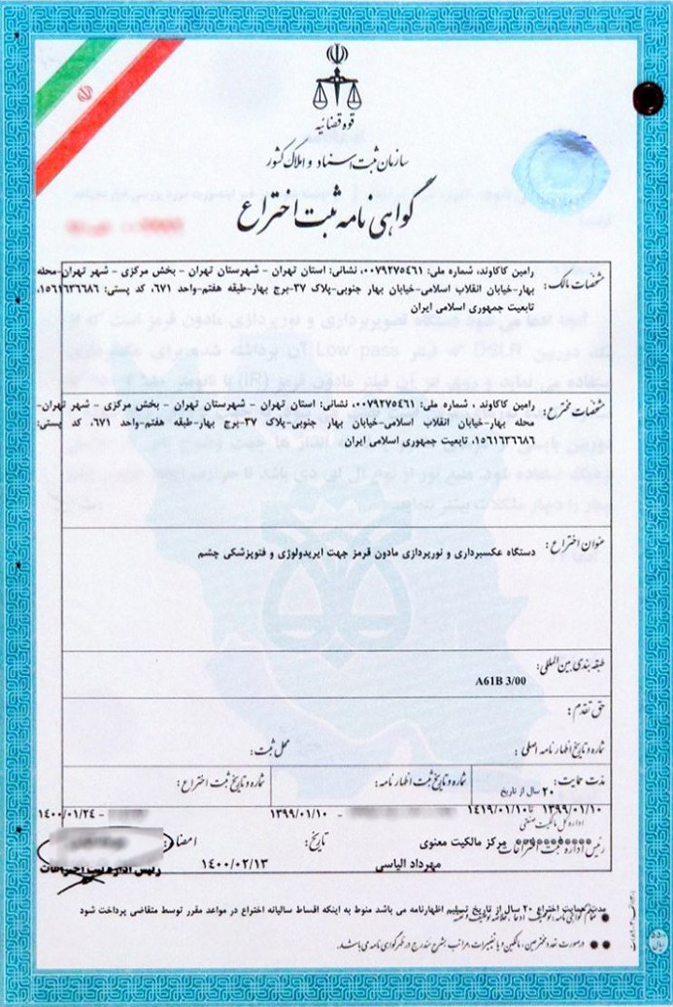 قوه قضائیه
سازمان ثبت اسناد و املاک کشور
گواهی نامه ثبت اختراع
مشخصات مالک: رامین کاکاوند، شماره ملی: ۰۰۷۹۲۷۵۴۶۱، نشانی: استان تهران - شهرستان تهران - بخش مرکزی - شهر تهران-محله
بهار-خیابان انقلاب اسلامی-خیابان بهار جنوبی-پلاک ۲۷-برج بهار-طبقه هفتم-واحد ۶۷۱، کد پستی: ۱۵۶۱۶۳۶۶۸۶،
تابعیت جمهوری اسلامی ایران
مشخصات مخترع: رامین کاکاوند ، شماره ملی: ۰۰۷۹۲۷۵۴۶۱، نشانی: استان تهران - شهرستان تهران - بخش مرکزی - شهر تهران-
محله بهار-خیابان انقلاب اسلامی-خیابان بهار جنوبی-پلاک ۲۷-برج بهار-طبقه هفتم-واحد ۶۷۱، کد پستی:
۱۵۶۱۶۳۶۶۸۶، تابعیت جمهوری اسلامی ایران
عنوان اختراع: دستگاه عکسبرداری و نورپردازی مادون قرمز جهت ایریدولوژی و فتوپزشکی چشم
طبقه بندی بین المللی:
A61B 3/00
حق تقدم:
شماره و تاریخ اظهارنامه اصلی: محل ثبت:
مدت حمایت: ۲۰ سال از تاریخ شماره و تاریخ ثبت اظهارنامه: شماره و تاریخ ثبت اختراع:
۱۳۹۹/۰۱/۱۰ تا ۱۴۱۹/۰۱/۱۰ - ۱۳۹۹/۰۱/۱۰ - ۱۴۰۰/۰۱/۲۴
اداره کل مالکیت صنعتی
رئیس اداره ثبت اختراعات مرکز مالکیت معنوی تاریخ: امضا:
مهرداد الیاسی ۱۴۰۰/۰۲/۱۳
رئیس اداره ثبت اختراعات
مدت حمایت اختراع ۲۰ سال از تاریخ تسلیم اظهارنامه می باشد منوط به اینکه اقساط سالیانه اختراع در مواعد مقرر توسط متقاضی پرداخت شود
در صورت تعدد مخترعین، مالکین و یا تغییرات، مراتب بشرح مندرج در ظهر گواهی نامه می باشد.